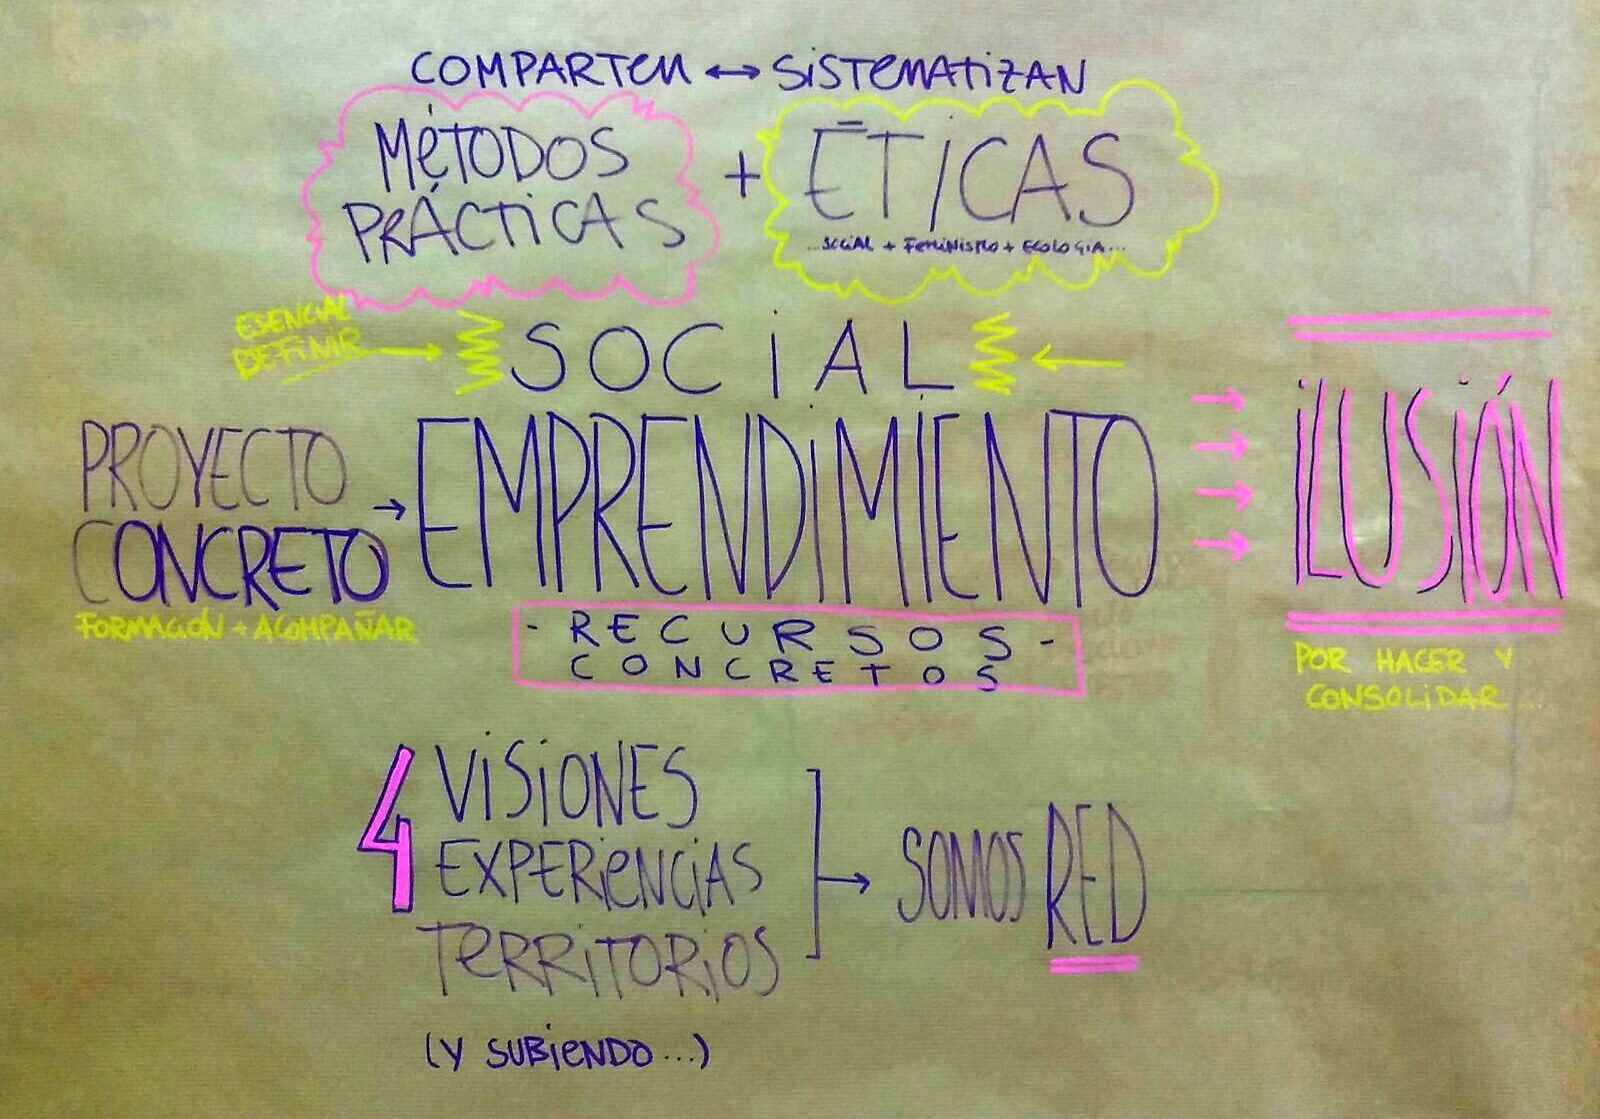 COMPARTEN ↔ SISTEMATIZAN
MÉTODOS
PRÁCTICAS
+ ÉTICAS
...SOCIAL + FEMINISMO + ECOLOGIA...
ESENCIAL
DEFINIR →
SOCIAL
←
PROYECTO
CONCRETO
→ EMPRENDIMIENTO
→ → → →
ILUSIÓN
FORMACIÓN + ACOMPAÑAR
- RECURSOS -
CONCRETOS
POR HACER Y
CONSOLIDAR...
4 VISIONES
EXPERIENCIAS
TERRITORIOS
→ SOMOS RED
(Y SUBIENDO...)